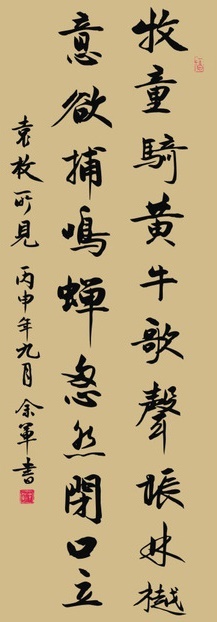 牧童騎黄牛歌聲振林樾
意欲捕鳴蝉忽然閉口立
袁枚所見 丙申年九月 余軍書